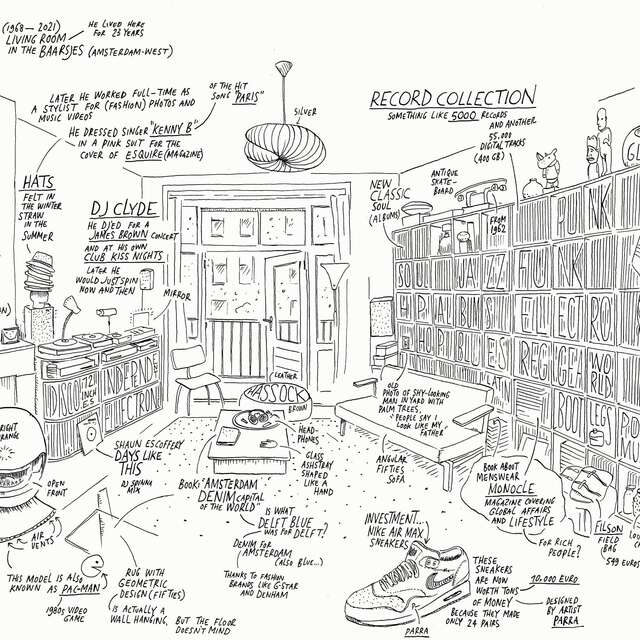 (1968 — 2021)
LIVING ROOM
IN THE BAARSJES (AMSTERDAM-WEST)
HE LIVED HERE
FOR 23 YEARS
LATER HE WORKED FULL-TIME AS
A STYLIST FOR (FASHION) PHOTOS AND
MUSIC VIDEOS
HE DRESSED SINGER "KENNY B"
IN A PINK SUIT FOR THE
COVER OF ESQUIRE (MAGAZINE)
OF THE HIT
SONG "PARIS"
SILVER
RECORD COLLECTION
SOMETHING LIKE 5000 RECORDS
AND ANOTHER
55.000
DIGITAL TRACKS
(400 GB)
HATS
FELT IN
THE WINTER
STRAW
IN THE
SUMMER
DJ CLYDE
HE DJ'ED FOR A
JAMES BROWN CONCERT
AND AT HIS OWN
CLUB KISS NIGHTS
LATER HE
WOULD JUST SPIN
NOW AND THEN
MIRROR
NEW
CLASSIC
SOUL
(ALBUMS)
ANTIQUE
SKATE-
BOARD
FROM
1962
PUNK
SOUL JAZZ FUNK
HIP ALBUMS ELECTRO
HOP BLUES REGGEA WORLD
DOUBLES
DISCO 12 INCHES INDEPENDENT
ELECTRON
LEATHER
HASSOCK
BROWN
HEAD-
PHONES
GLASS
ASHSTRAY
SHAPED
LIKE A
HAND
OLD
PHOTO OF SHY-LOOKING
MAN IN YARD WITH
PALM TREES.
"PEOPLE SAY I
LOOK LIKE MY
FATHER
ANGULAR
FIFTIES
SOFA
SHAUN ESCOFFERY
DAYS LIKE
THIS
DJ SPINNA
MIX
BOOK: "AMSTERDAM
DENIM CAPITAL
OF THE WORLD"
IS WHAT
DELFT BLUE
WAS FOR DELFT?
DENIM FOR
AMSTERDAM
(ALSO BLUE...)
THANKS TO FASHION
BRANDS LIKE G-STAR
AND DENHAM
OPEN
FRONT
AIR
VENTS
THIS MODEL IS ALSO
KNOWN AS PAC-MAN
1980s VIDEO
GAME
RUG WITH
GEOMETRIC
DESIGN (FIFTIES)
IS ACTUALLY A
WALL HANGING, BUT THE FLOOR
DOESN'T MIND
INVESTMENT...
NIKE AIR MAX
SNEAKERS
AMSTERDAM
PARRA
THESE
SNEAKERS
ARE NOW
WORTH TONS
OF MONEY
BECAUSE THEY MADE
ONLY 24 PAIRS
10.000 EURO
DESIGNED
BY ARTIST
PARRA
BOOK ABOUT
MENSWEAR
MONOCLE
MAGAZINE COVERING
GLOBAL AFFAIRS
AND LIFESTYLE
FOR RICH
PEOPLE?
FILSON
FIELD
BAG
549 EUROS